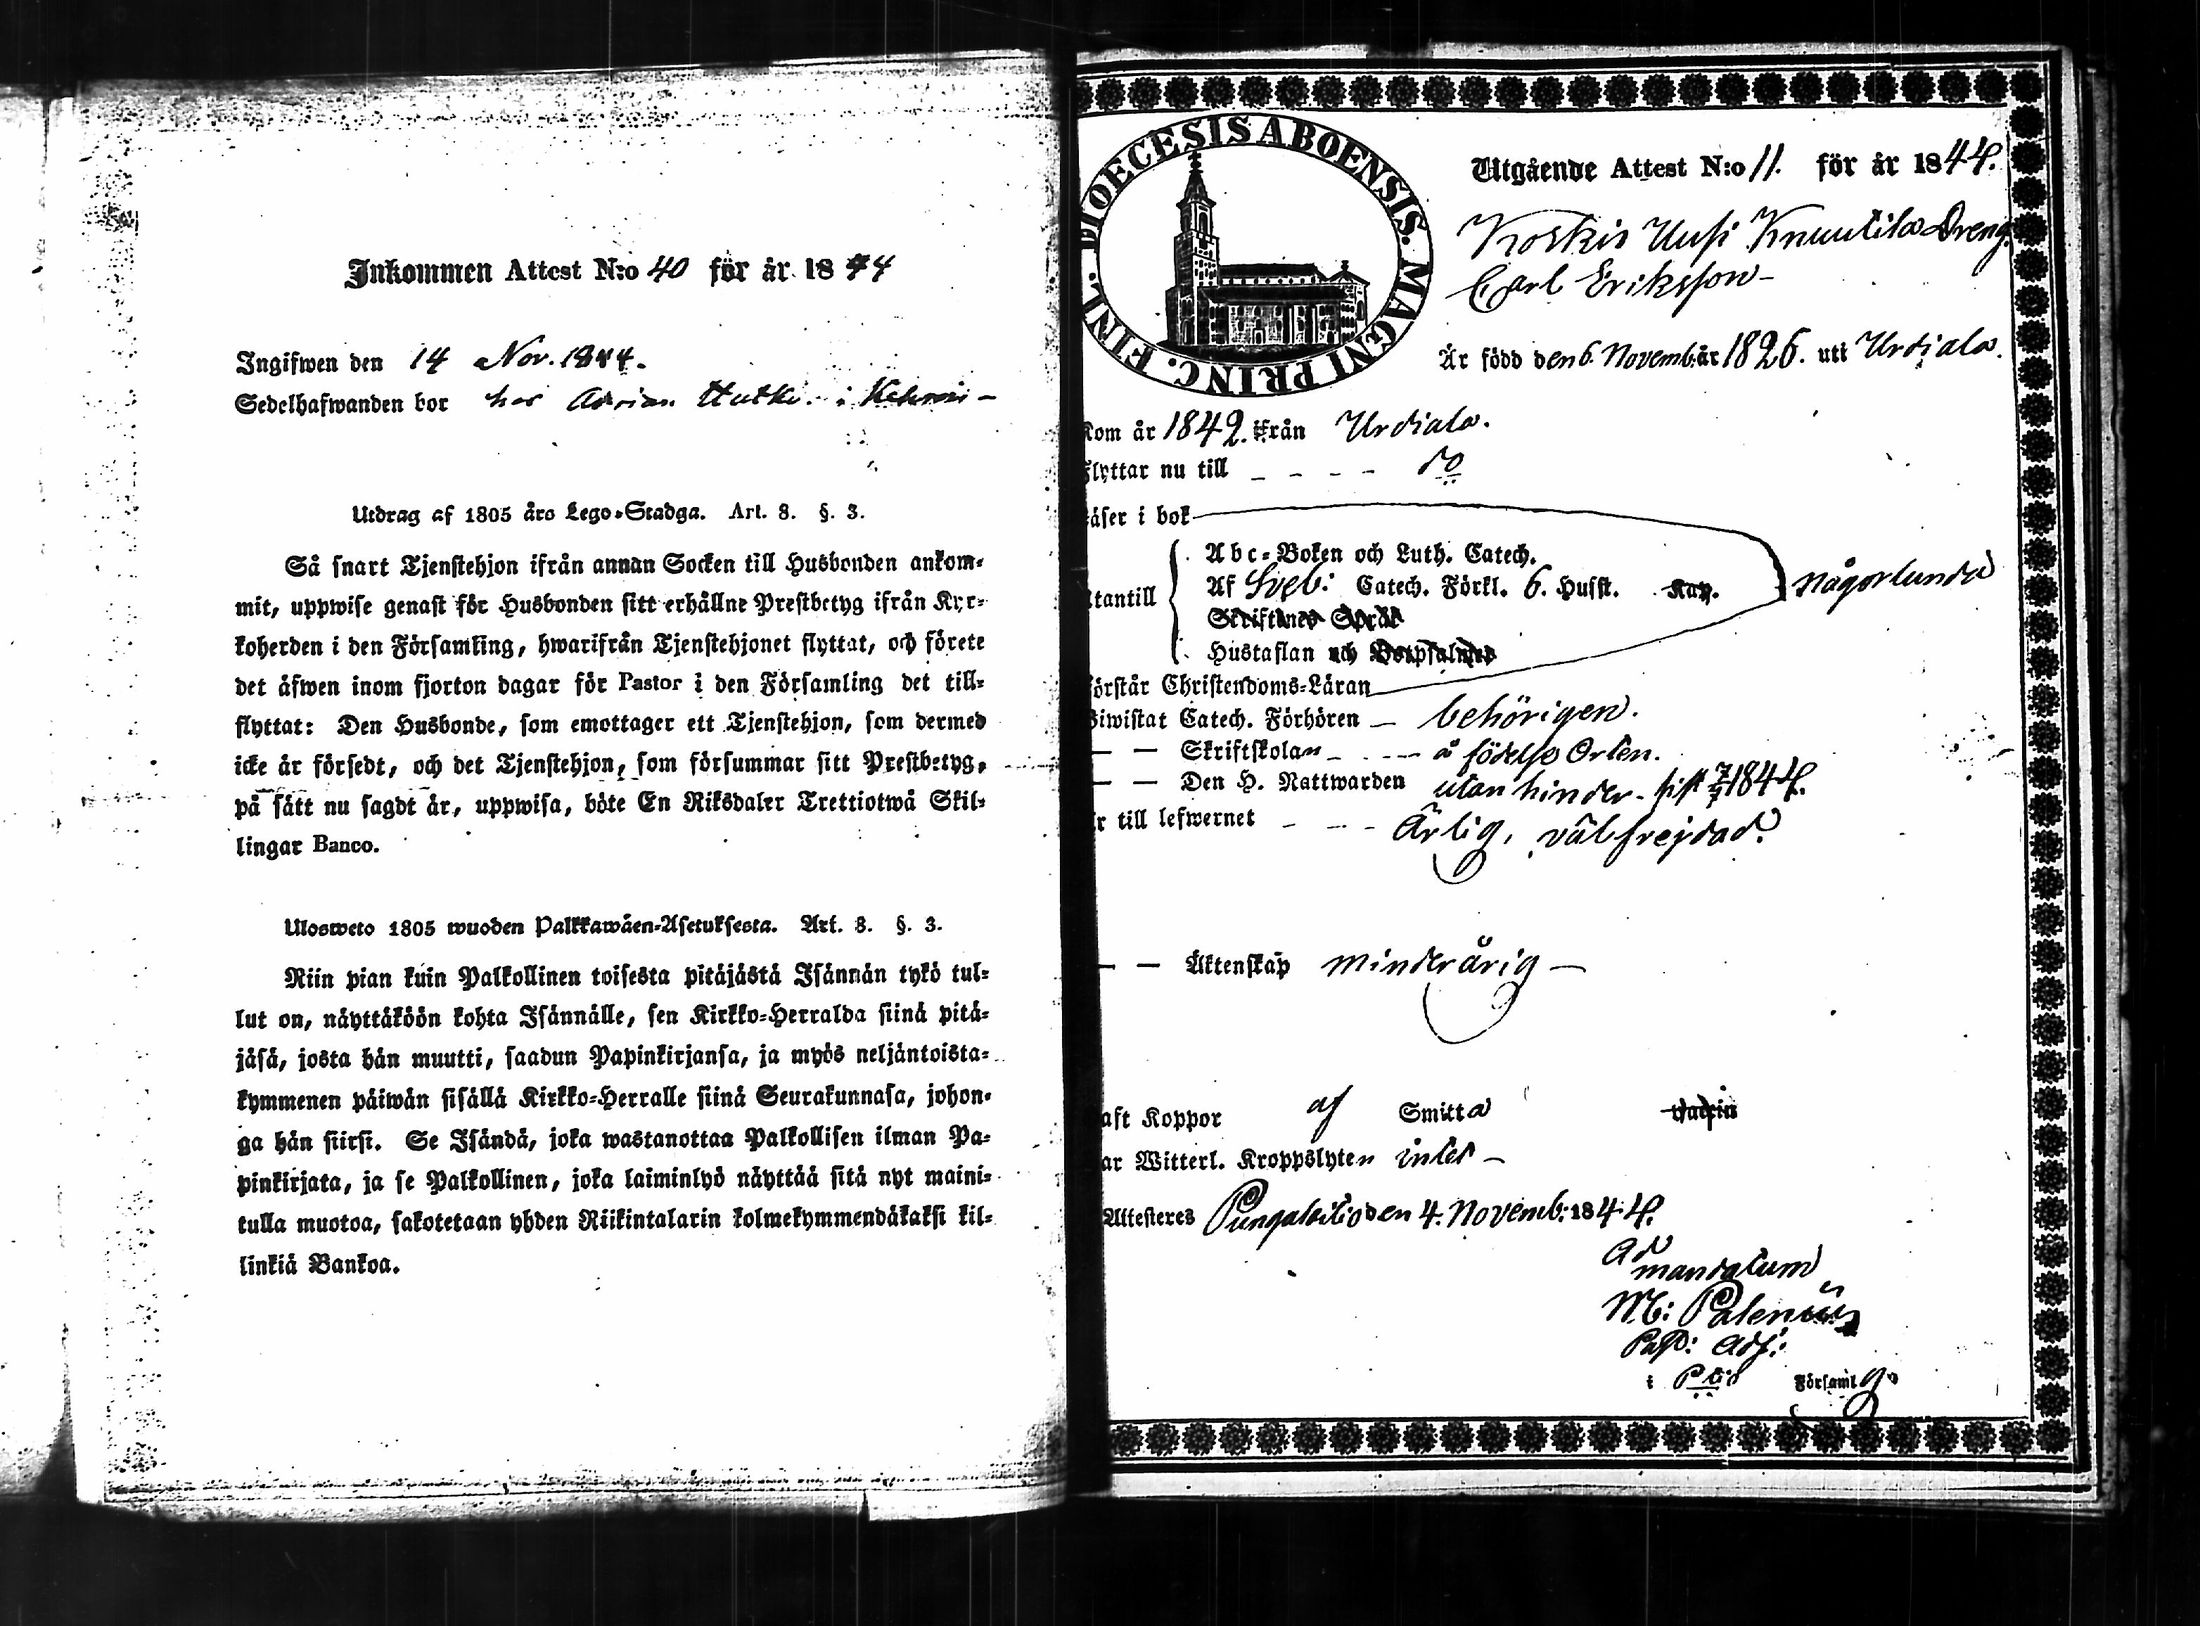 Inkommen Attest N:o 40 för år 1844
Ingifwen den 14 Nov. 1844.
Sedelhafwanden bor hos Adrian Hutki i
Utdrag af 1805 års Lego-Stadga. Art. 3. §. 3.
Så snart Tjenstehjon ifrån annan Socken till Husbonden ankom-
mit, uppwise genast för Husbonden sitt erhållne Prestbetyg ifrån Kyr-
koherden i den Församling, hwarifrån Tjenstehjonet flyttat, och förete
det äfwen inom fjorton dagar för Pastor i den Församling det till-
flyttat: Den Husbonde, som emottager ett Tjenstehjon, som dermed
icke är försedt, och det Tjenstehjon, som försummar sitt Prestbetyg,
på sätt nu sagdt är, uppwisa, böte En Riksdaler Trettiotwå Skil-
lingar Banco.
Ulosweto 1805 wuoden Palkkawäen-Asetuksesta. Art. 3. §. 3.
Niin pian kuin Palkollinen toisesta pitäjästä Isännän tykö tul-
lut on, näyttäköön kohta Isännälle, sen Kirkko-Herralda siinä pitä-
jäsä, josta hän muutti, saadun Papinkirjansa, ja myös neljäntoista-
kymmenen päiwän sisällä Kirkko-Herralle siinä Seurakunnasa, johon-
ga hän siirsi. Se Isändä, joka wastanottaa Palkollisen ilman Pa-
pinkirjata, ja se Palkollinen, joka laiminlyö näyttää sitä nyt maini-
tulla muotoa, sakotetaan yhden Riikintalarin kolmekymmendäkaksi kil-
linkiä Bankoa.
DIOECESIS ABOENSIS. MAGNI PRINC. FINL.
Utgående Attest N:o 11. för år 1844.
Koskis Uusi Knuutila Dreng.
Carl Eriksson
Är född den 6. Novemb: år 1826. uti Urdiala.
Kom år 1842. ifrån Urdiala.
Flyttar nu till do
Läser i bok
Abc-Boken och Luth. Catech.
Utantill Af Sveb: Catech. Förkl. 6. Husst. Kap. någorlunda
Skriftenes Språk
Hustaflan och Botpsalmer
Förstår Christendoms-Läran
Biwistat Catech. Förhören behörigen.
— — Skriftskolan å födelse Orten.
— — Den H. Nattwarden utan hinder. sist 7/7 1844.
Är till lefwernet Ärlig, välfrejdad.
— — Äktenskap minderårig
Haft Koppor af Smitta Vaccin
Har Witterl. Kroppslyten intet
Attesteres Pungalaitio den 4. Novemb: 1844.
Ad
mandatum
M: Palenius
Past: Adj:
i P:tio Förs­aml g.